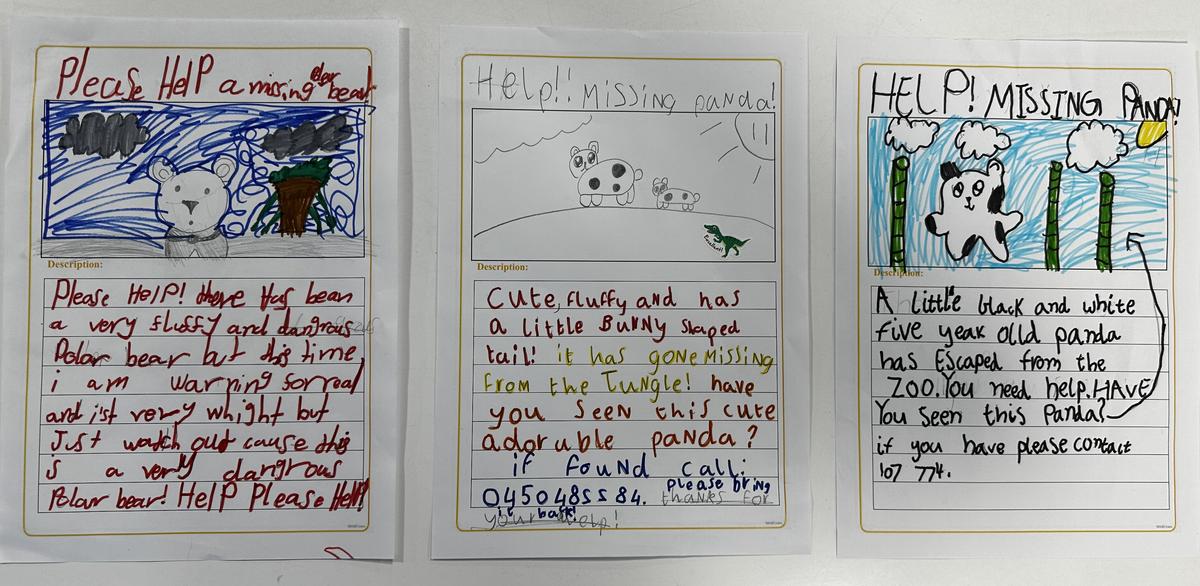 Please HelP a missing polar bear!
Description:
Please HelP! there has bean
a very fluffy and dangrous
Polar bear but this time
i am warning sorreal
and i'st very whight but
Jist watch out cause this
is a very dangrous
Polar bear! Help Please Help!
Help!! Missing panda!
Description:
Cute, fluffy and has
a little Bunny shaped
tail! it has gone missing
from the Jungle! have
you seen this cute
adoruble panda?
if found call:
0450485584. please bring
it back!
thanks for
your help!
HELP! MISSING PANDA!
Description:
A little black and white
five year olld panda
has Escaped from the
ZOO. You need help. HAVE
You seen this Panda?
if you have please contact
107 774.